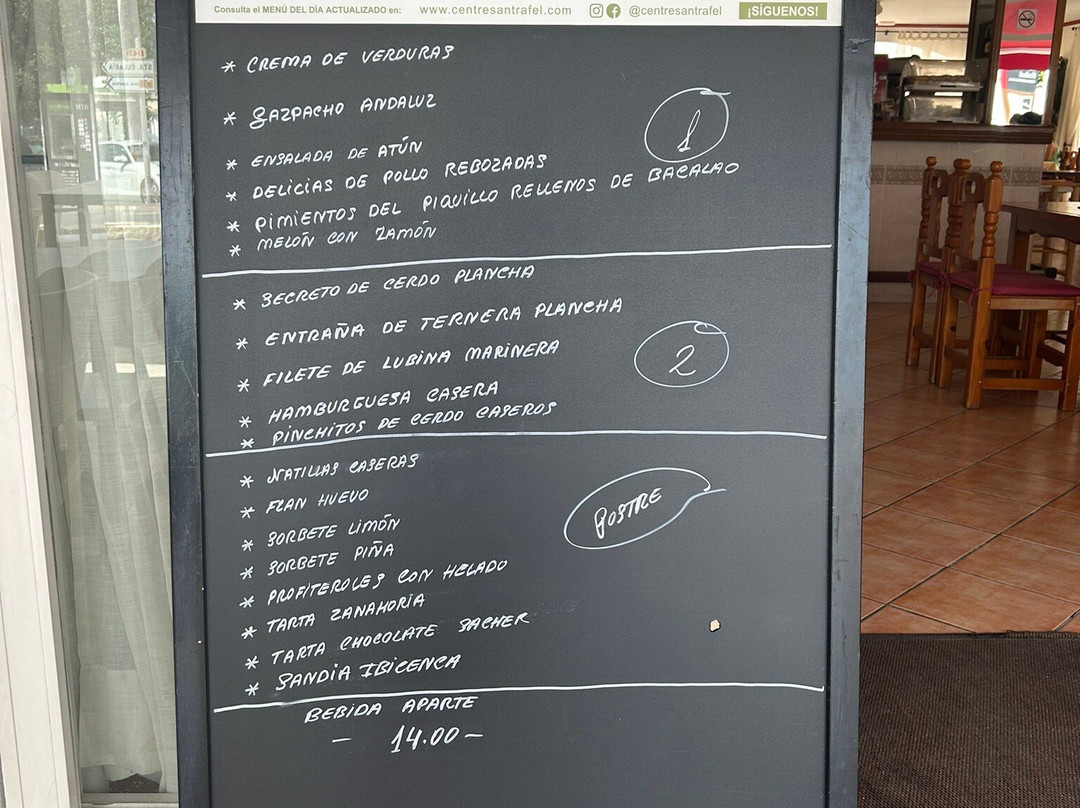 Consulta el MENÚ DEL DÍA ACTUALIZADO en: www.centresantrafel.com @centresantrafel ¡SÍGUENOS!
* CREMA DE VERDURAS
* GAZPACHO ANDALUZ
1
* ENSALADA DE ATÚN
* DELICIAS DE POLLO REBOZADAS
* PIMIENTOS DEL PIQUILLO RELLENOS DE BACALAO
* MELÓN CON JAMÓN
* SECRETO DE CERDO PLANCHA
* ENTRAÑA DE TERNERA PLANCHA
* FILETE DE LUBINA MARINERA
2
* HAMBURGUESA CASERA
* PINCHITOS DE CERDO CASEROS
* NATILLAS CASERAS
* FLAN HUEVO
POSTRE
* SORBETE LIMÓN
* SORBETE PIÑA
* PROFITEROLES CON HELADO
* TARTA ZANAHORIA
* TARTA CHOCOLATE SACHER
* SANDÍA IBICENCA
BEBIDA APARTE
- 14.00 -